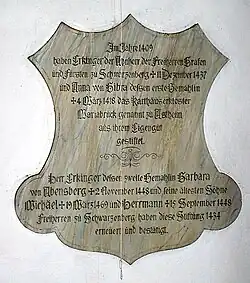 Im Jahre 1409
haben Erkinger der Ahnherr der Freiherren Grafen
und Fürsten zu Schwarzenberg + 11 Dezember 1437
und Anna von Bibra dessen erste Gemahlin
+ 4 März 1418 das Karthäuserkloster
Mariabruck genannt zu Astheim
aus ihrem Eigengut
gestiftet.
Herr Erkinger dessen zweite Gemahlin Barbara
von Abensberg + 2 November 1448 und seine ältesten Söhne
Michael + 19 März 1469 und Herrmann + 15 September 1448
Freiherren zu Schwarzenberg haben diese Stiftung 1434
erneuert und bestätigt.